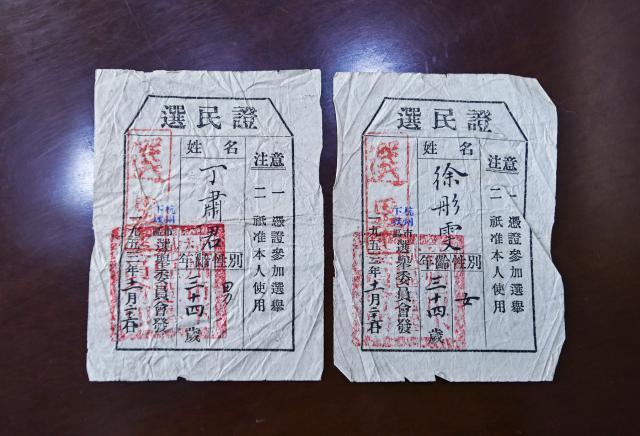 選民證
注意
一 憑證參加選舉
二 祇准本人使用
姓名
丁肅君
年齡 性別
三十四歲 男
杭州市下城區選舉委員會發
一九五三年 月 日
選民證
注意
一 憑證參加選舉
二 祇准本人使用
姓名
徐彤雯
年齡 性別
三十四歲 女
杭州市下城區選舉委員會發
一九五三年 月 日